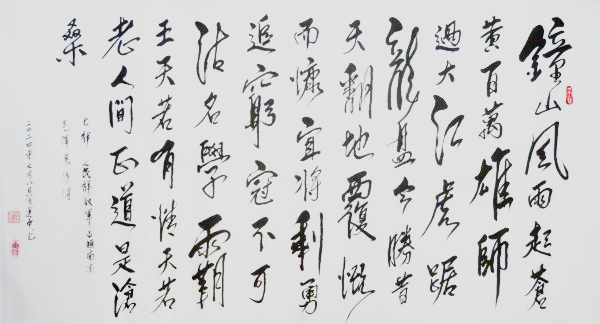 鐘山風雨起蒼
黃百萬雄師
過大江虎踞
龍盤今勝昔
天翻地覆慨
而慷宜將剩勇
追窮寇不可
沽名學霸
王天若有情天若
老人間正道是滄
桑
七律 人民解放軍占領南京
毛澤東詩詞
二〇一四年七月八日